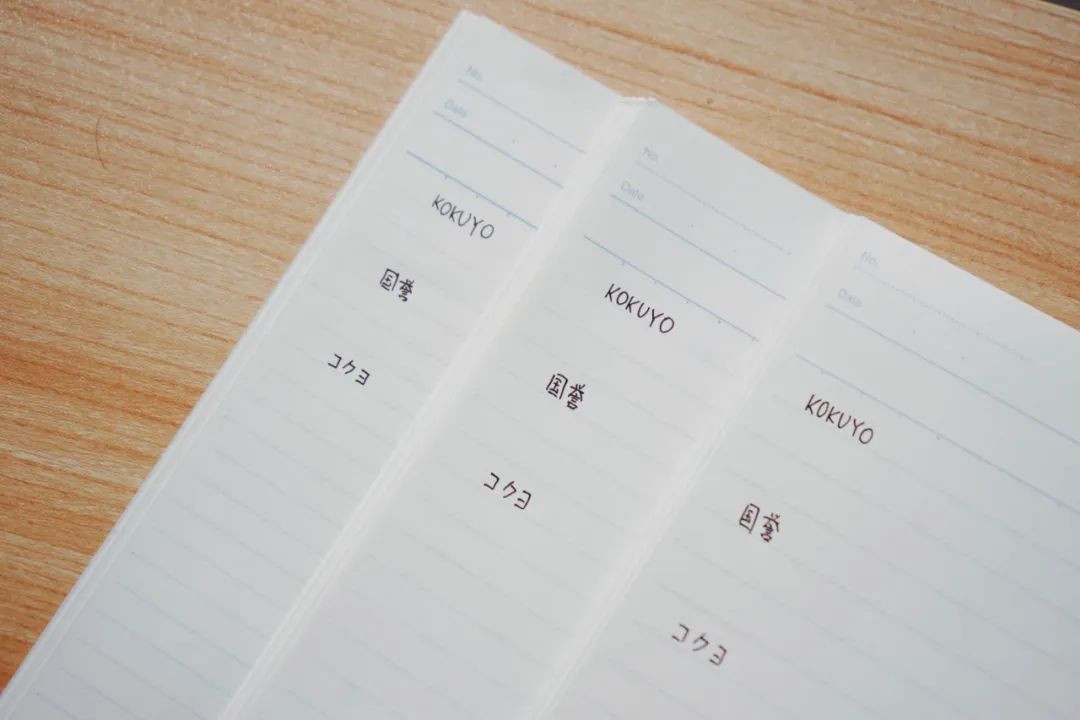 No.
Date
KOKUYO
国誉
コクヨ
No.
Date
KOKUYO
国誉
コクヨ
No.
Date
KOKUYO
国誉
コクヨ